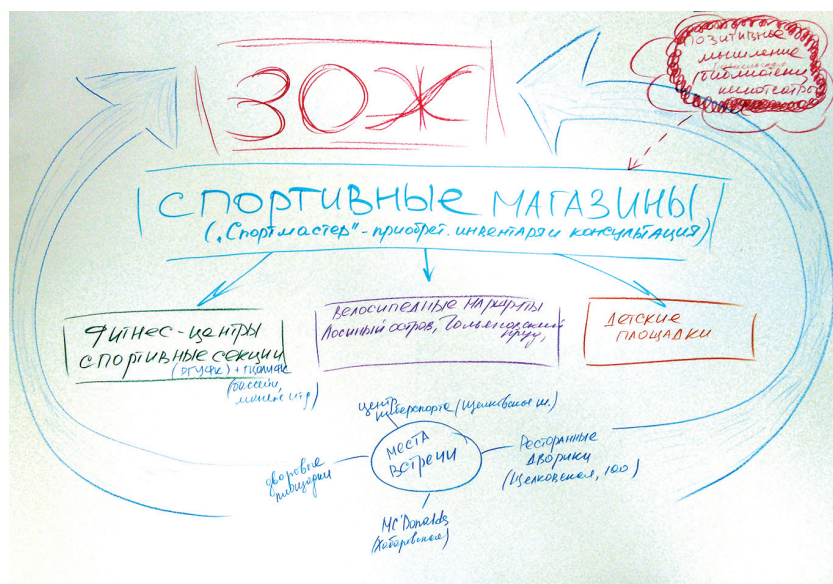 ЗОЖ
позитивное
мышление
(библиотеки,
кинотеатры
СПОРТИВНЫЕ МАГАЗИНЫ
("Спортмастер" - приобрет. инвентаря и консультация)
Фитнес-центры
спортивные секции
(РГУФК) + ГЦОЛИФК
(бассейн,
манеж итд)
Велосипедные маршруты
Лосиный остров, Гольяновский
пруд,
Детские
площадки
центр
киберспорта (Щелковское ш.)
места
встречи
дворовые
площадки
Ресторанные
дворики
(Щелковская, 100)
MC'Donalds
(Хабаровская)